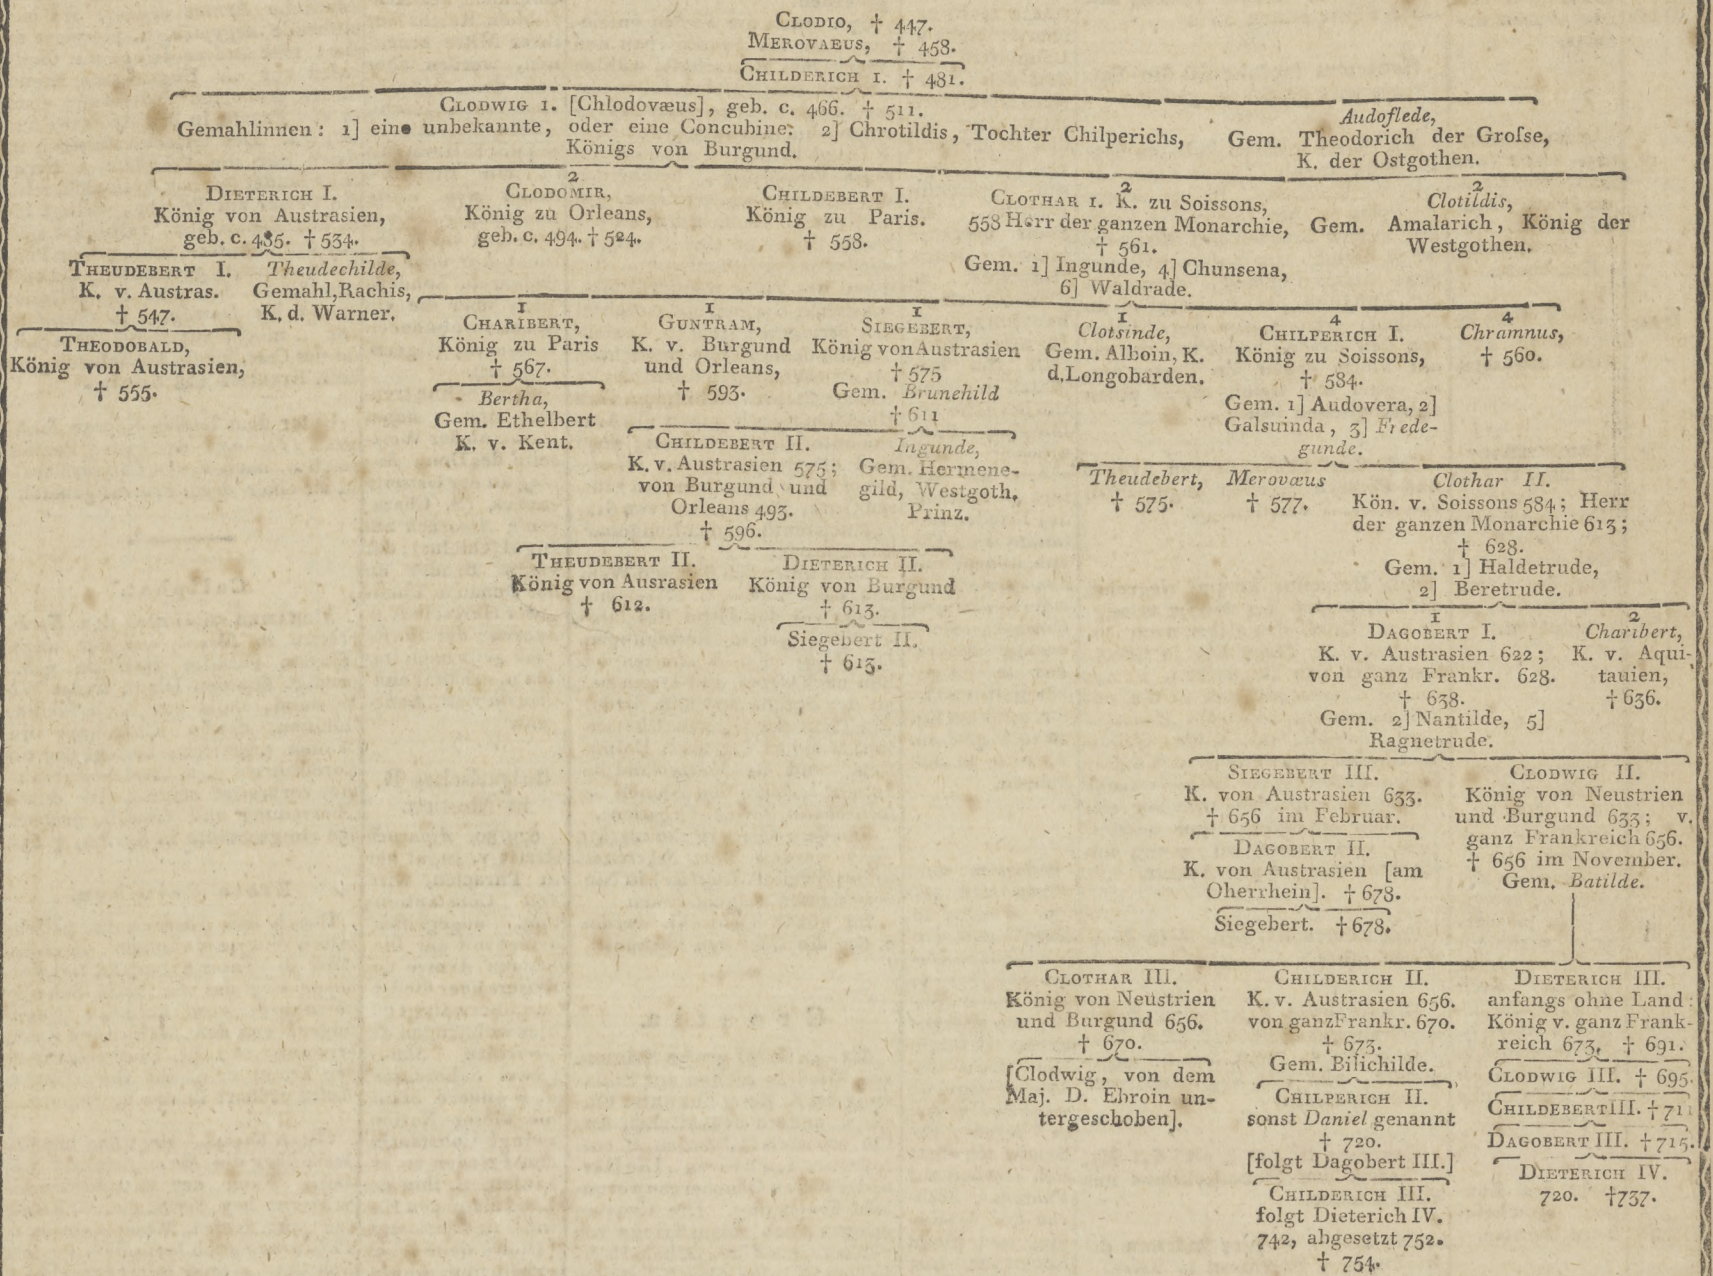 CLODIO, † 447.
MEROVAEUS, † 458.
CHILDERICH I. † 481.
CLODWIG I. [Chlodovæus], geb. c. 466. † 511.
Gemahlinnen: 1] eine unbekannte, oder eine Concubine: 2] Chrotildis, Tochter Chilperichs,
Königs von Burgund.
Audoflede,
Gem. Theodorich der Grofse,
K. der Ostgothen.
DIETERICH I.
König von Austrasien,
geb. c. 485. † 534.
2
CLODOMIR,
König zu Orleans,
geb. c. 494. † 524.
CHILDEBERT I.
König zu Paris.
† 558.
2
CLOTHAR I. K. zu Soissons,
558 Herr der ganzen Monarchie,
† 561.
Gem. 1] Ingunde, 4] Chunsena,
6] Waldrade.
2
Clotildis,
Gem. Amalarich, König der
Westgothen.
THEUDEBERT I.
K. v. Austras.
† 547.
Theudechilde,
Gemahl, Rachis,
K. d. Warner.
THEODOBALD,
König von Austrasien,
† 555.
1
CHARIBERT,
König zu Paris
† 567.
Bertha,
Gem. Ethelbert
K. v. Kent.
1
GUNTRAM,
K. v. Burgund
und Orleans,
† 593.
1
SIEGEBERT,
König von Austrasien
† 575
Gem. Brunehild
† 611
1
Clotsinde,
Gem. Alboin, K.
d. Longobarden.
4
CHILPERICH I.
König zu Soissons,
† 584.
Gem. 1] Audovera, 2]
Galsuinda, 3] Frede-
gunde.
4
Chramnus,
† 560.
CHILDEBERT II.
K. v. Austrasien 575;
von Burgund und
Orleans 493.
† 596.
Ingunde,
Gem. Hermene-
gild, Westgoth.
Prinz.
THEUDEBERT II.
König von Ausrasien
† 612.
DIETERICH II.
König von Burgund
† 613.
Siegebert II.
† 613.
Theudebert,
† 575.
Merovæus
† 577.
Clothar II.
Kön. v. Soissons 584; Herr
der ganzen Monarchie 613;
† 628.
Gem. 1] Haldetrude,
2] Beretrude.
1
DAGOBERT I.
K. v. Austrasien 622;
von ganz Frankr. 628.
† 638.
Gem. 2] Nantilde, 5]
Ragnetrude.
2
Charibert,
K. v. Aqui-
tauien,
† 636.
SIEGEBERT III.
K. von Austrasien 633.
† 656 im Februar.
DAGOBERT II.
K. von Austrasien [am
Oherrhein]. † 678.
Siegebert. † 678.
CLODWIG II.
König von Neustrien
und Burgund 633; v.
ganz Frankreich 656.
† 656 im November.
Gem. Batilde.
CLOTHAR III.
König von Neustrien
und Burgund 656.
† 670.
[Clodwig, von dem
Maj. D. Ebroin un-
tergeschoben].
CHILDERICH II.
K. v. Austrasien 656.
von ganz Frankr. 670.
† 673.
Gem. Bilichilde.
CHILPERICH II.
sonst Daniel genannt
† 720.
[folgt Dagobert III.]
CHILDERICH III.
folgt Dieterich IV.
742, abgesetzt 752.
† 754.
DIETERICH III.
anfangs ohne Land:
König v. ganz Frank-
reich 673, † 691.
CLODWIG III. † 695.
CHILDEBERT III. † 711
DAGOBERT III. † 715.
DIETERICH IV.
720. † 737.